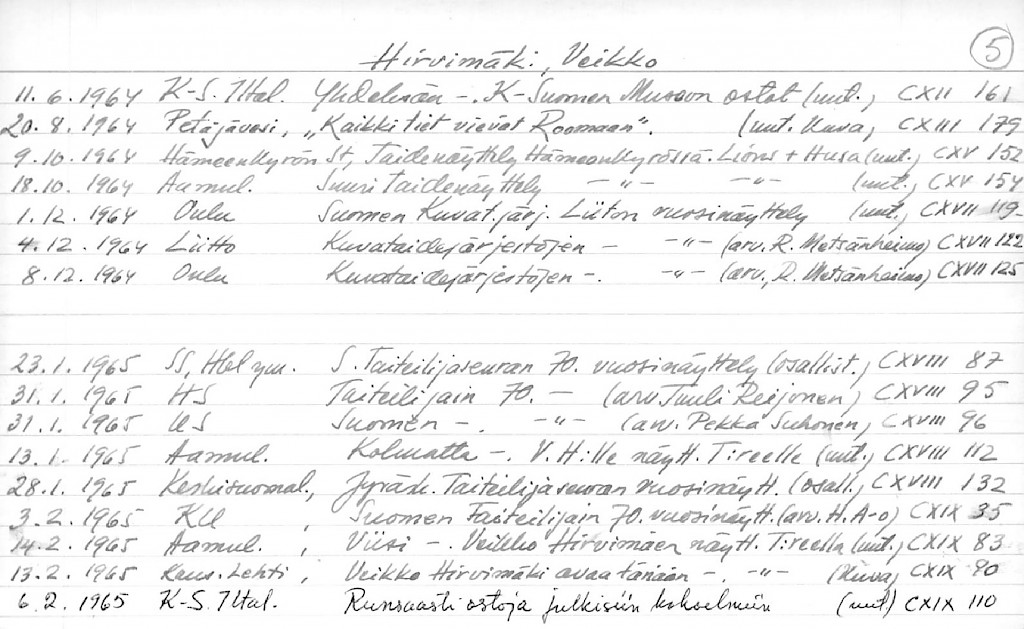 5
Hirvimäki, Veikko
11.6.1964 K-S. Iltal. Yhdeksän -. K-Suomen Museon ostot (uut.) CXII 161
20.8.1964 Petäjävesi, „Kaikki tiet vievät Roomaan". (uut. kuva) CXIII 179
9.10.1964 Hämeenkyrön St, Taidenäyttely Hämeenkyrössä. Lions + Husa (uut.) CXV 152
18.10.1964 Aamul. Suuri Taidenäyttely -"- -"- (uut.) CXV 154
1.12.1964 Oulu Suomen Kuvat.järj. Liiton vuosinäyttely (uut.) CXVII 119
4.12.1964 Liitto Kuvataidejärjestöjen - -"- (arv. R. Metsänheimo) CXVII 122
8.12.1964 Oulu Kuvataidejärjestöjen -. -"- (arv., R. Metsänheimo) CXVII 125
23.1.1965 SS, Hbl ym. S. Taiteilijaseuran 70. vuosinäyttely (osallist.) CXVIII 87
31.1.1965 HS Taiteilijain 70. - (arv Tuuli Reijonen) CXVIII 95
31.1.1965 US Suomen -. -"- (arv. Pekka Suhonen) CXVIII 96
13.1.1965 Aamul. Kolmatta -. V. H:lle näytt. T:reelle (uut.) CXVIII 112
28.1.1965 Keskisuomal., Jyväsk. Taiteilijaseuran vuosinäytt. (osall.) CXVIII 132
3.2.1965 KU , Suomen Taiteilijain 70. vuosinäytt. (arv. H. A-o) CXIX 35
14.2.1965 Aamul. , Viisi -. Veikko Hirvimäen näytt. T:reella (uut.) CXIX 83
13.2.1965 Kans. Lehti, Veikko Hirvimäki avaa tänään -. -"- (kuva) CXIX 90
6.2.1965 K-S. Iltal. Runsaasti ostoja julkisiin kokoelmiin (uut) CXIX 110